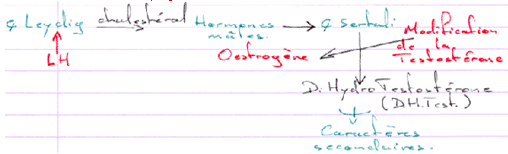 ¢ Leydig cholestérol Hormones mâles. ¢ Sertoli Modification de la Testostérone
LH
Oestrogène
D. Hydro Testostérone
(DH.Test.)
Caractères
secondaires.